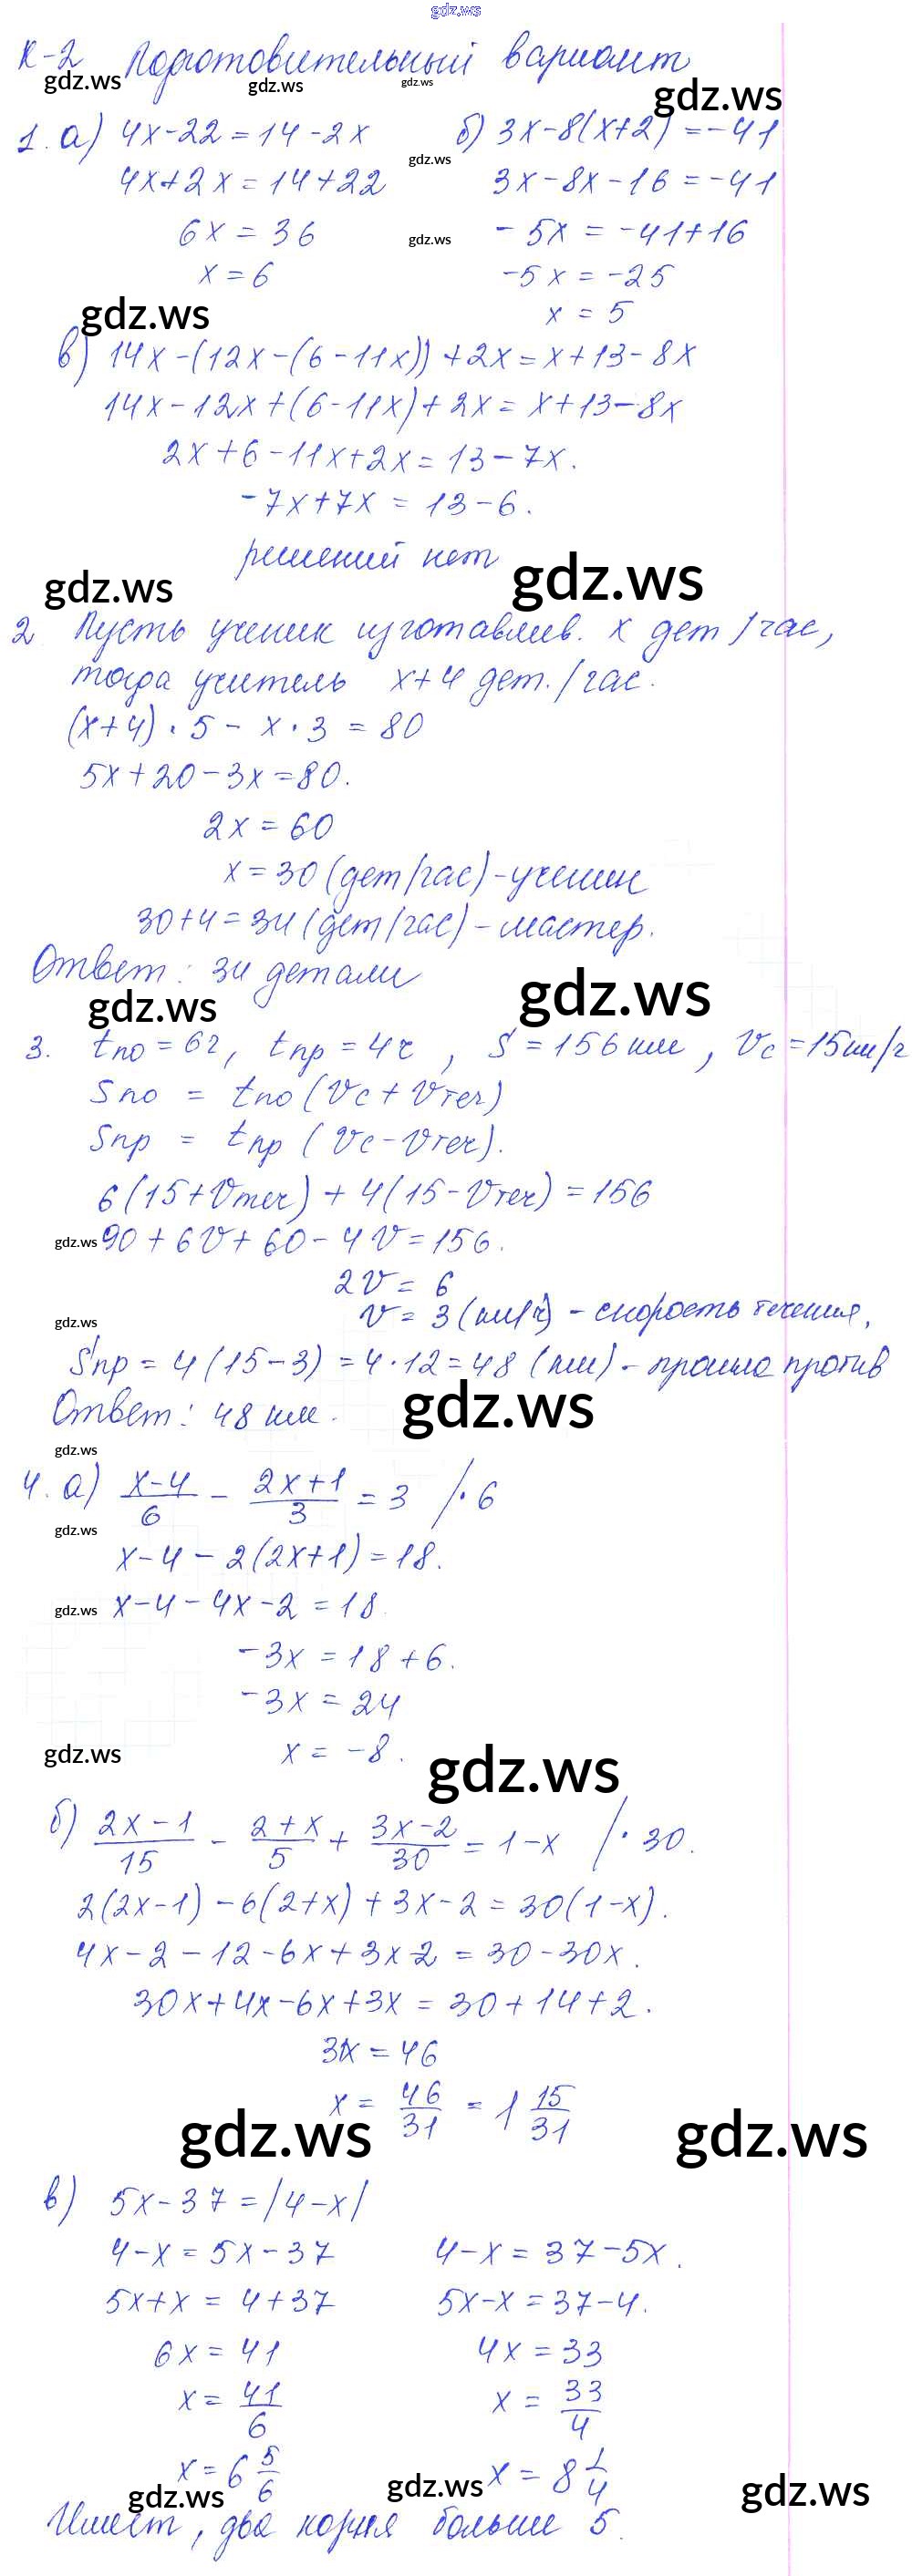 gdz.ws
К-2 Подготовительный вариант
gdz.ws gdz.ws gdz.ws gdz.ws
1. а) 4x-22=14-2x б) 3x-8(x+2)=-41
gdz.ws
4x+2x=14+22 3x-8x-16=-41
6x=36 gdz.ws -5x=-41+16
x=6 -5x=-25
gdz.ws x=5
в) 14x-(12x-(6-11x))+2x=x+13-8x
14x-12x+(6-11x)+2x=x+13-8x
2x+6-11x+2x=13-7x.
-7x+7x=13-6.
решений нет gdz.ws
gdz.ws
2 Пусть ученик изготавлив. x дет/час,
тогда учитель x+4 дет./час.
(x+4)·5-x·3=80
5x+20-3x=80.
2x=60
x=30(дет/час)-ученик
30+4=34(дет/час)-мастер.
Ответ: 34 детали
gdz.ws gdz.ws
3. tпо=6ч, tпр=4ч, S=156км, Vc=15км/ч
Sпо = tпо(Vc+Vтеч)
Sпр = tпр(Vc-Vтеч).
6(15+Vтеч)+4(15-Vтеч)=156
gdz.ws 90+6V+60-4V=156.
2V=6
gdz.ws V=3(км/ч)-скорость течения,
Sпр=4(15-3)=4·12=48(км)-прошла против
Ответ: 48 км. gdz.ws
gdz.ws
4. а) \frac{x-4}{6} - \frac{2x+1}{3} = 3 /·6
gdz.ws
x-4-2(2x+1)=18.
gdz.ws x-4-4x-2=18.
-3x=18+6.
-3x=24
gdz.ws x=-8. gdz.ws
б) \frac{2x-1}{15} - \frac{2+x}{5} + \frac{3x-2}{30} = 1-x /·30.
2(2x-1)-6(2+x)+3x-2=30(1-x).
4x-2-12-6x+3x-2=30-30x.
30x+4x-6x+3x=30+14+2.
31x=46
x=\frac{46}{31}=1\frac{15}{31}
gdz.ws gdz.ws
в) 5x-37=|4-x|
4-x=5x-37 4-x=37-5x.
5x+x=4+37 5x-x=37-4.
6x=41 4x=33
x=\frac{41}{6} x=\frac{33}{4}
x=6\frac{5}{6} x=8\frac{1}{4}
gdz.ws gdz.ws gdz.ws
Имеет, два корня больше 5.